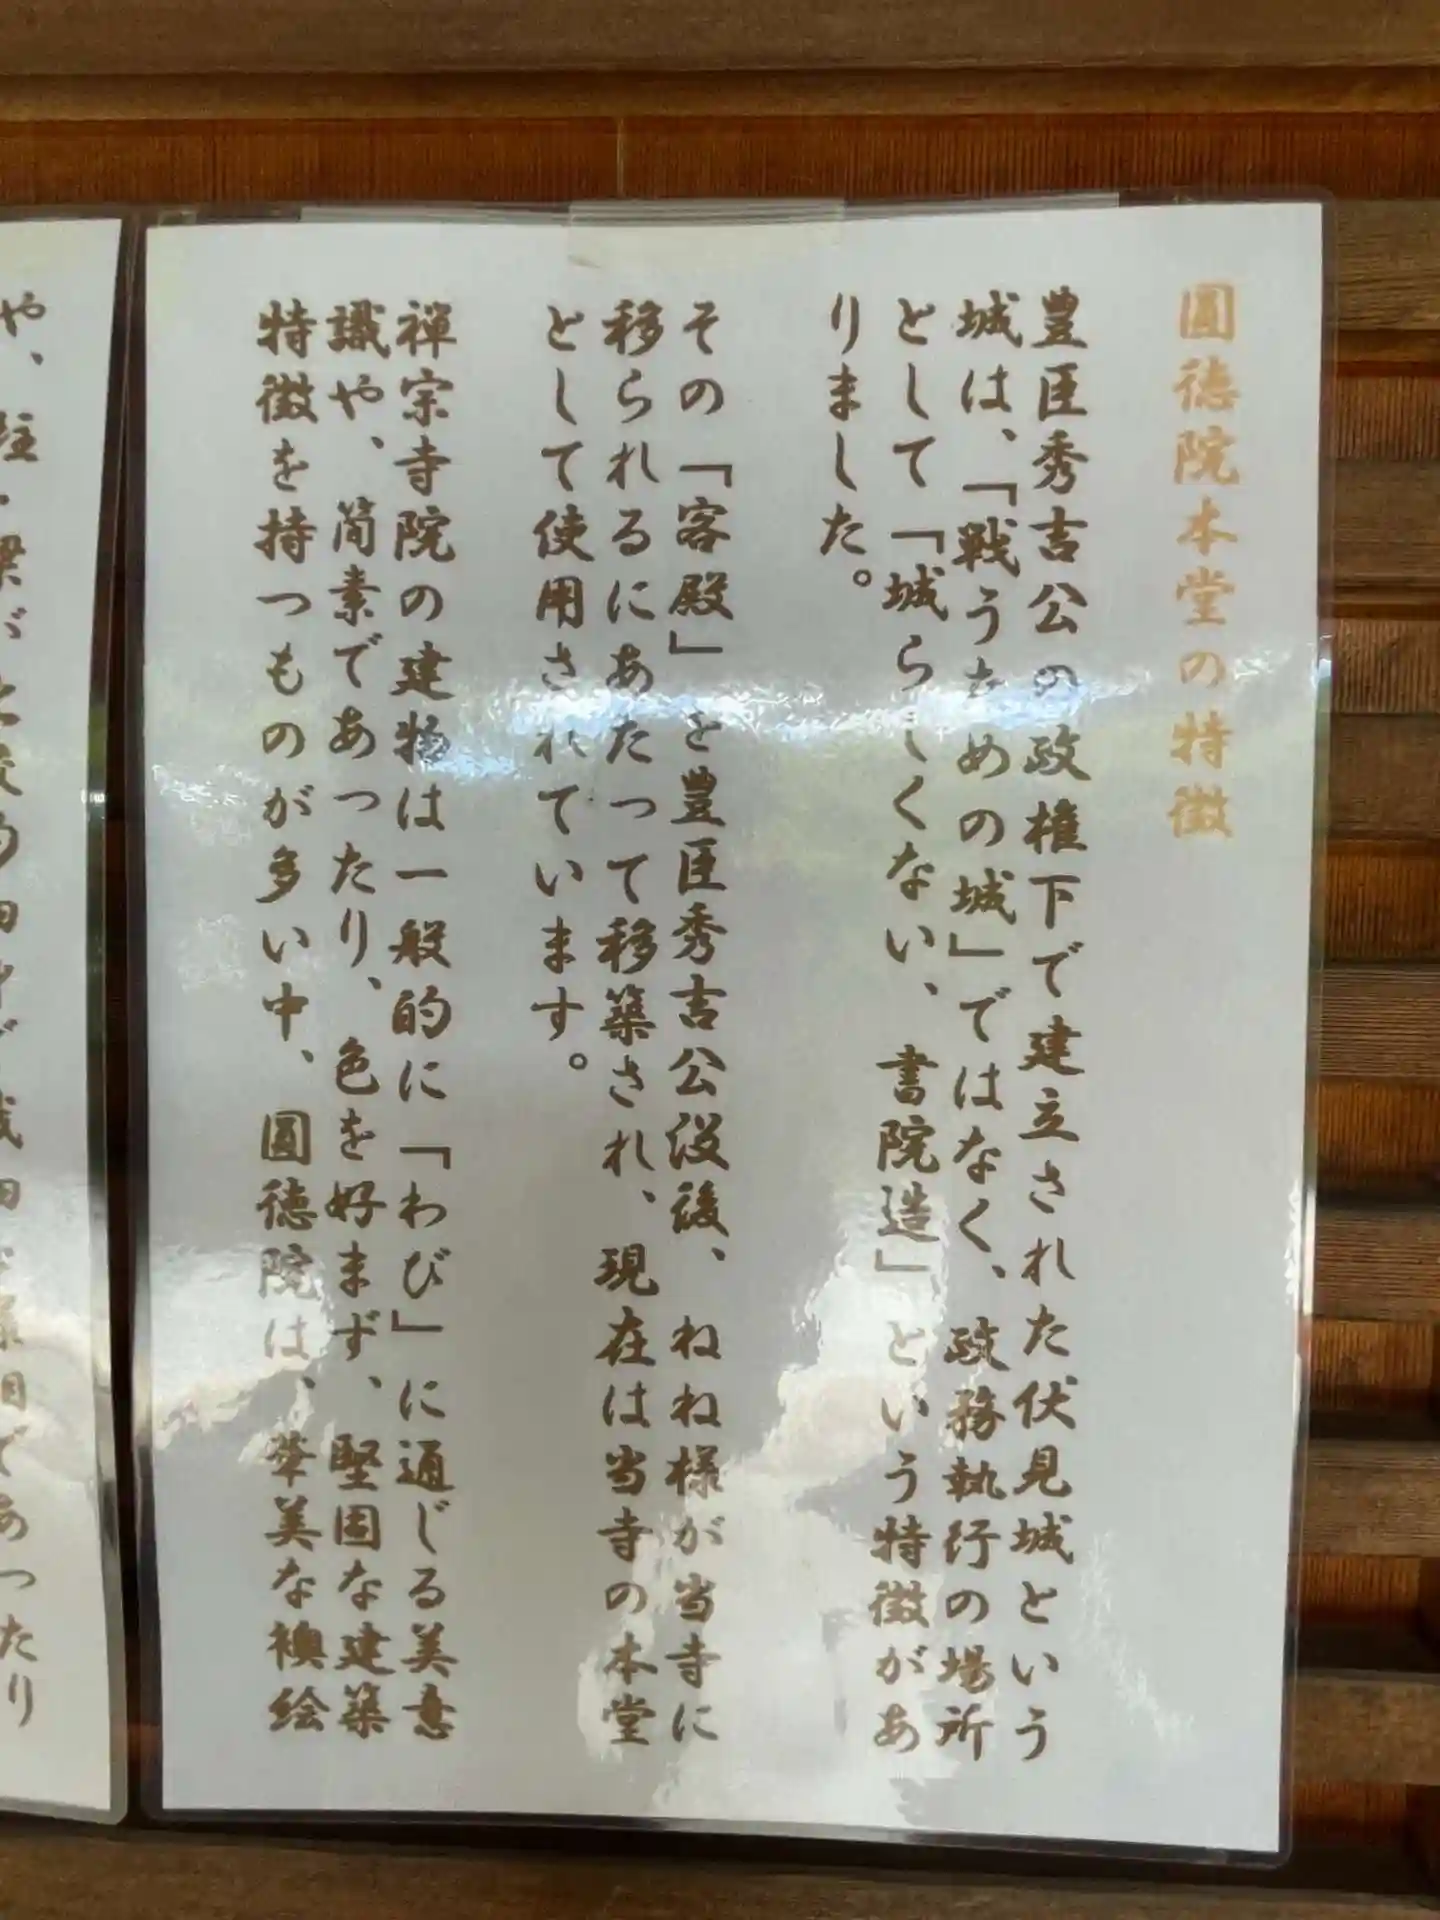 圓徳院本堂の特徴
豊臣秀吉公の政権下で建立された伏見城という
城は、「戦うための城」ではなく、政務執行の場所
として「城らしくない、書院造」という特徴があ
りました。
その「客殿」を豊臣秀吉公没後、ねね様が当寺に
移られるにあたって移築され、現在は当寺の本堂
として使用されています。
禅宗寺院の建物は一般的に「わび」に通じる美意
識や、簡素であったり、色を好まず、堅固な建築
特徴を持つものが多い中、圓徳院は、華美な襖絵
や、